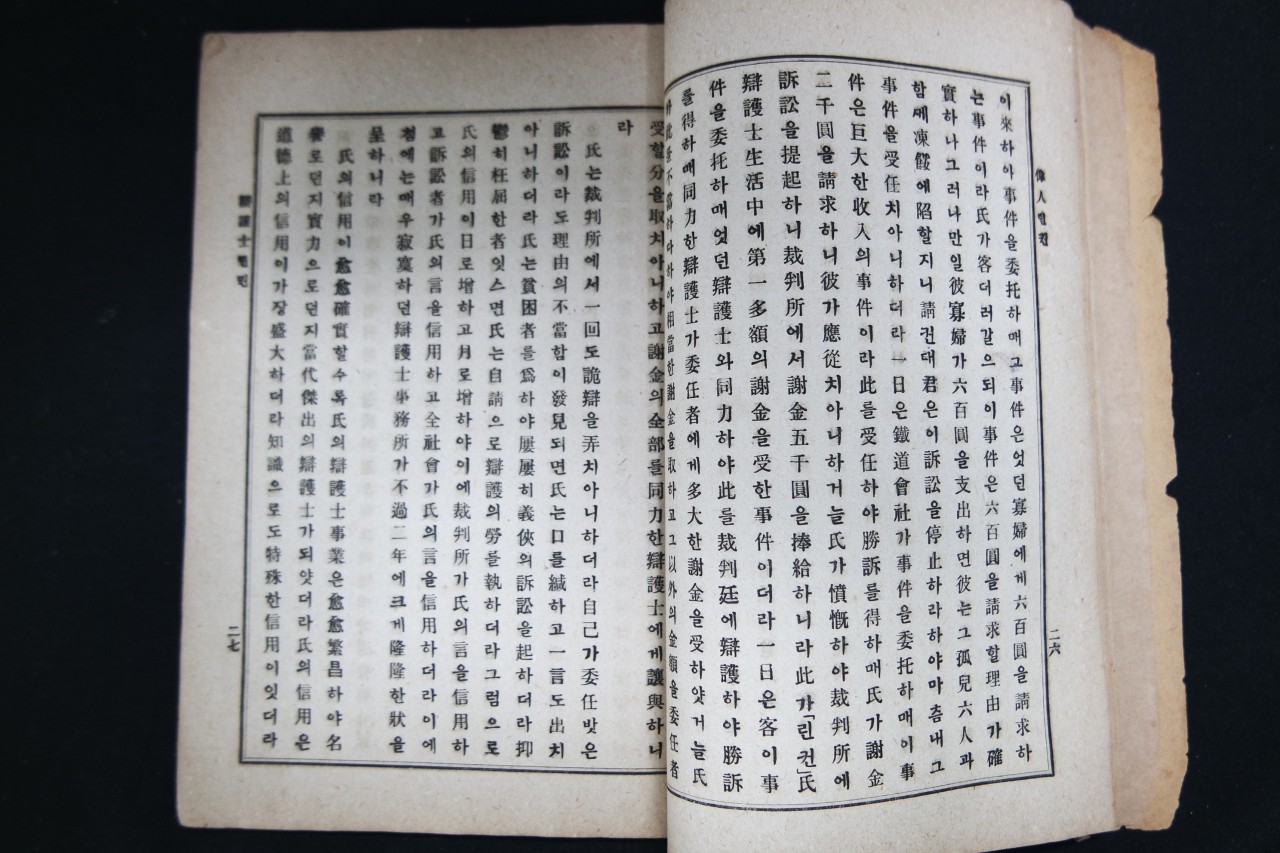 偉人린컨
二六
이來하야事件을委托하매그事件은엇던寡婦에게六百圓을請求하
는事件이라氏가客더러갈으되이事件은六百圓을請求할理由가確
實하나그러나만일彼寡婦가六百圓을支出하면彼는그孤兒六人과
함께凍餒에陷할지니請컨대君은이訴訟을停止하라하야마층내그
事件을受任치아니하더라一日은鐵道會社가事件을委托하매이事
件은巨大한收入의事件이라此를受任하야勝訴를得하매氏가謝金
二千圓을請求하니彼가應從치아니하거늘氏가憤慨하야裁判所에
訴訟을提起하니裁判所에서謝金五千圓을捧給하니라此가「린컨」氏
辯護士生活中에第一多額의謝金을受한事件이더라一日은客이事
件을委托하매엇던辯護士와同力하야此를裁判廷에辯護하야勝訴
를得하매同力한辯護士가委任者에게多大한謝金을受하얏거늘氏
가此를不當하다하야相當한謝金을取하고그以外의金額을委任者
受할分을取치아니하고謝金의全部를同力한辯護士에게讓與하니
라
氏는裁判所에서一回도詭辯을弄치아니하더라自己가委任밧은
訴訟이라도理由의不當함이發見되면氏는口를緘하고一言도出치
아니하더라氏는貧困者를爲하야屢屢히義俠의訴訟을起하더라抑
鬱히枉屈한者잇스면氏는自請으로辯護의勞를執하더라그럼으로
氏의信用이日로增하고月로增하야이에裁判所가氏의言을信用하
고訴訟者가氏의言을信用하고全社會가氏의言을信用하더라이에
젼에는매우寂寞하던辯護士事務所가不過二年에크게隆隆한狀을
呈하니라
氏의信用이愈愈確實할수록氏의辯護士事業은愈愈繁昌하야名
譽로던지實力으로던지當代傑出의辯護士가되얏더라氏의信用은
道德上의信用이가장盛大하더라知識으로도特殊한信用이잇더라
辯護士린컨
二七